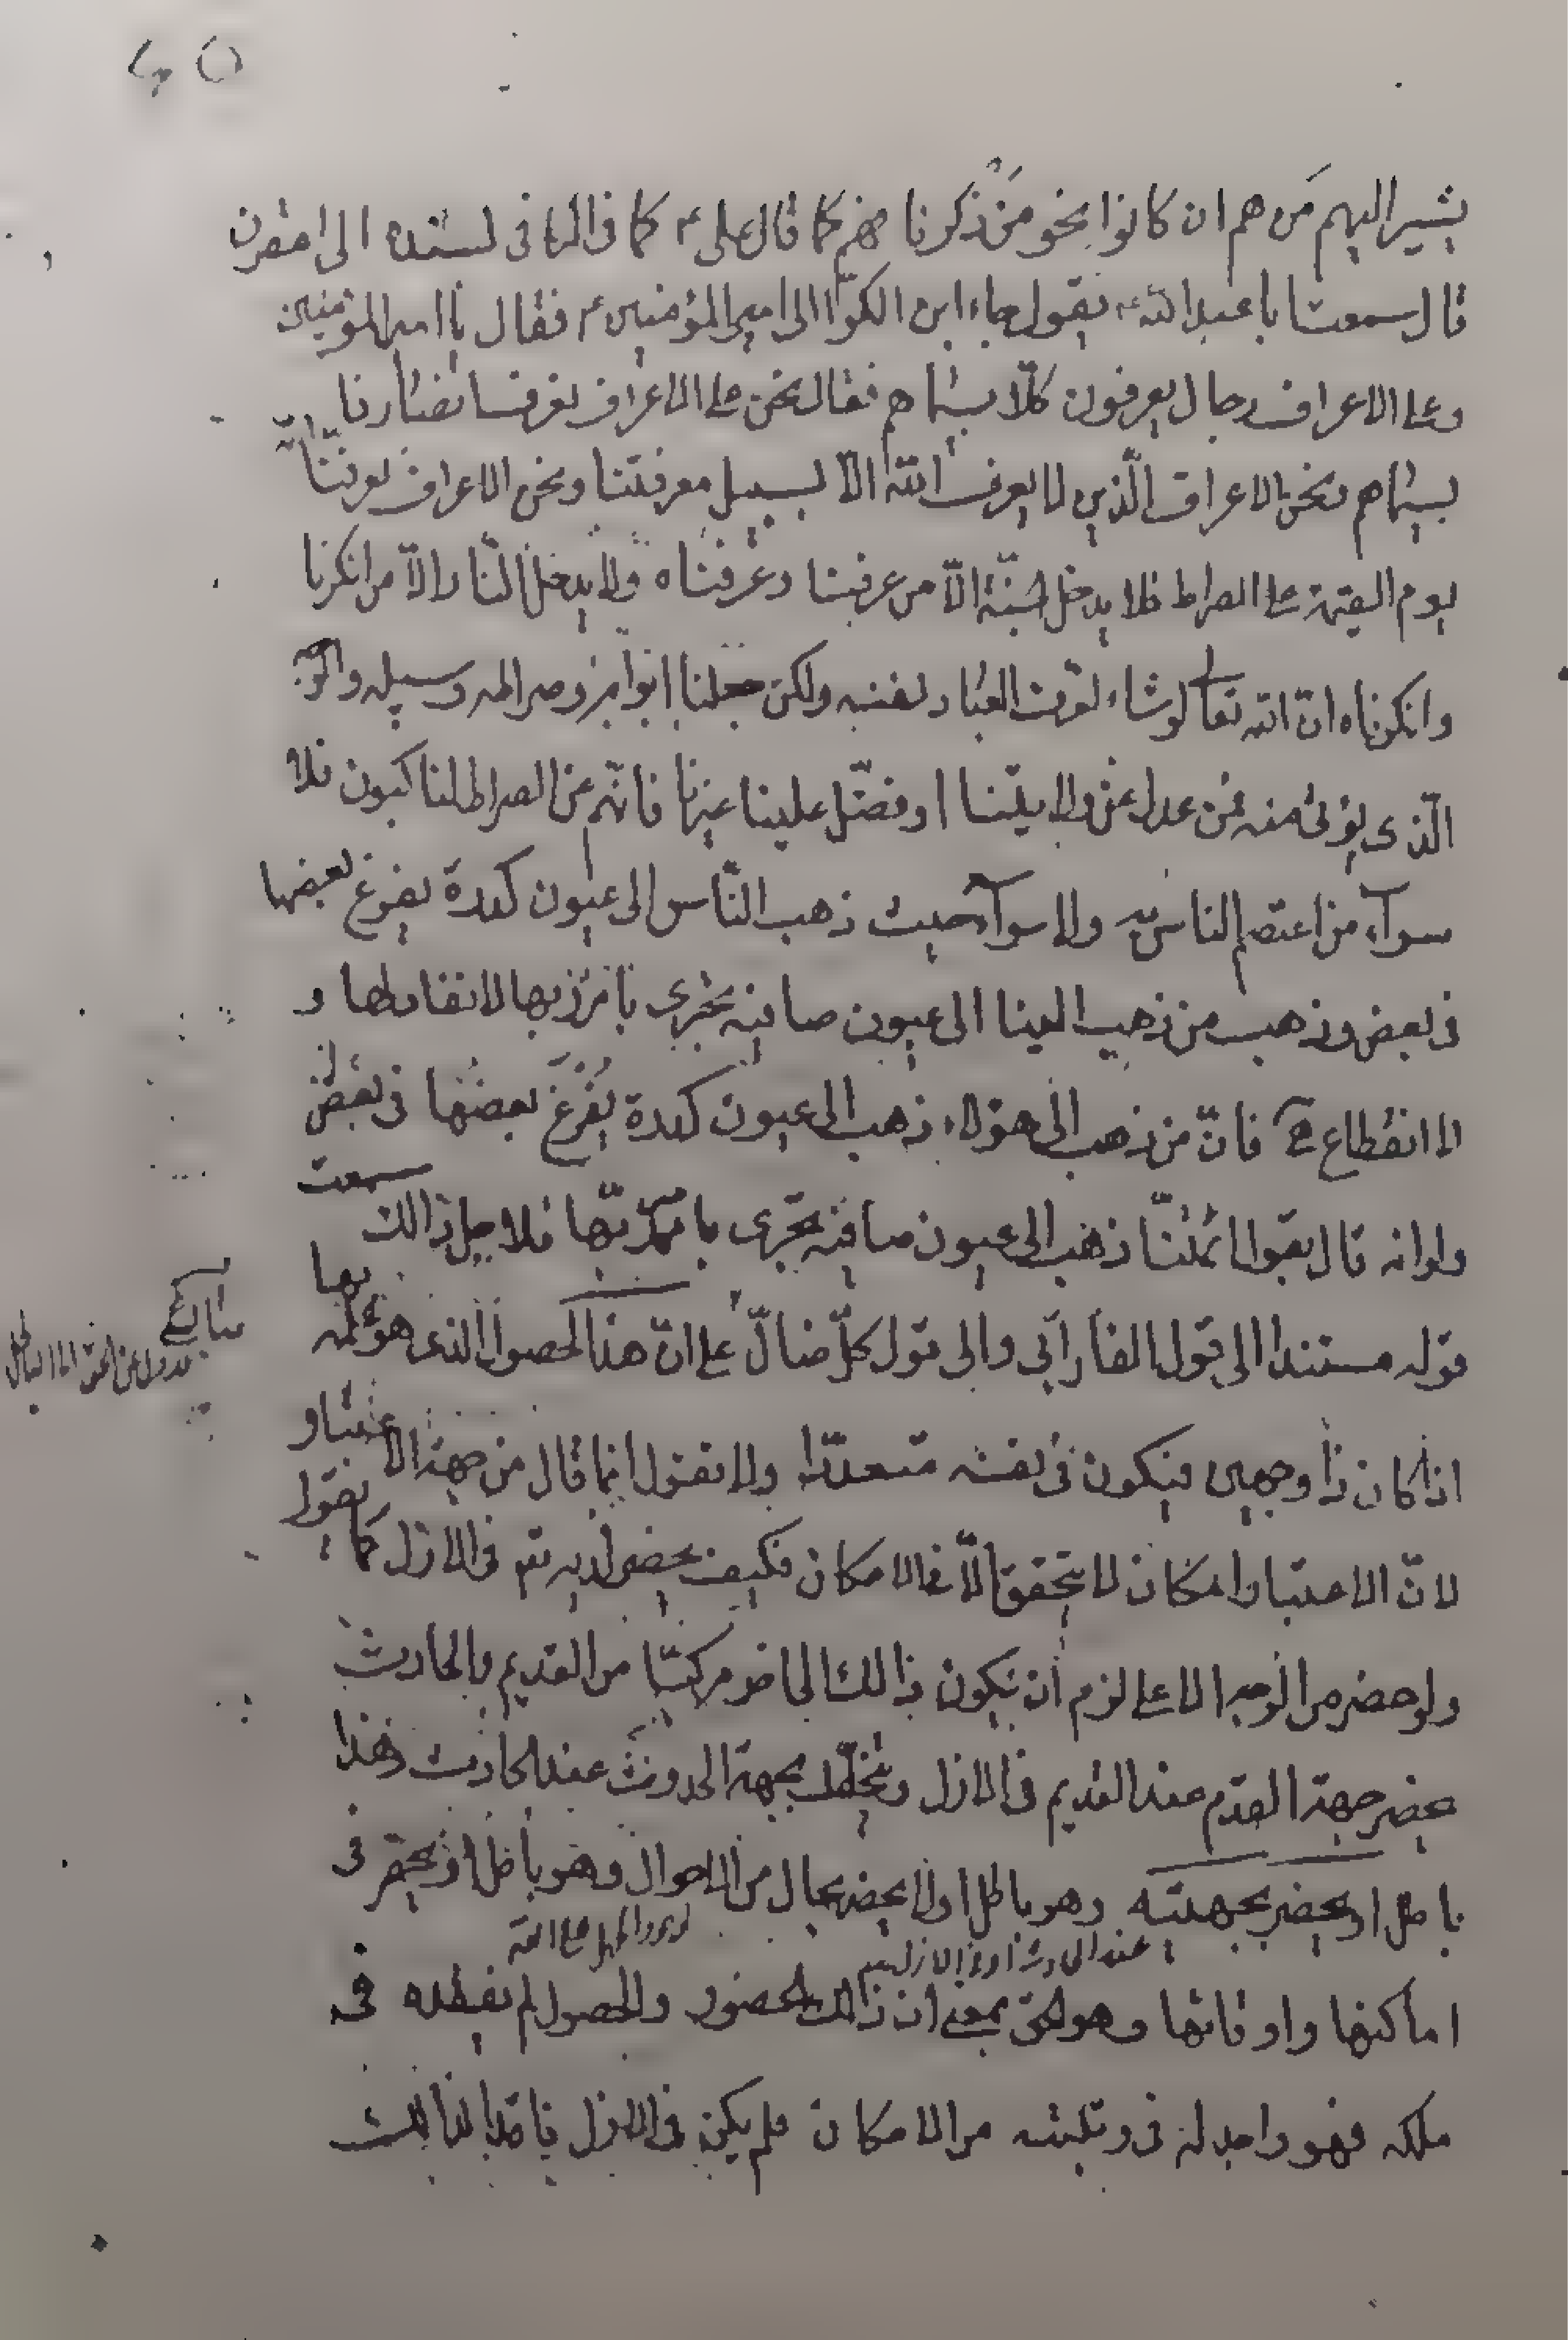 يشير اليهم من هم ان كانوا نحو من ذكرنا فهم كما قال على ع كما فى الكافى بسنده الى مقرن
قال سمعت ابا عبدالله ع يقول جاء ابن الكوّا الى امير المؤمنين ع فقال يا امير المؤمنين
وعلى الاعراف رجال يعرفون كلّا بسيماهم فقال نحن على الاعراف نعرف انصارنا
بسيماهم ونحن الاعراف الّذين لا يعرف الله الّا بسبيل معرفتنا ونحن الاعراف يعرفنا الله
يوم القيمة على الصراط فلا يدخل الجنّة الّا من عرفنا وعرفناه ولا يدخل النّار الّا من انكرنا
وانكرناه انّ الله تعالى لوشاء لعرف العباد نفسه ولكن جعلنا ابوابه وصراطه وسبيله والوجه
الّذى يؤتى منه فمن عدل عن ولايتنا او فضّل علينا غيرنا فانّهم عن الصراط لناكبون فلا
سوآء من اعتصم الناس به ولا سوآء حيث ذهب النّاس الى عيون كدرة يفرغ بعضها
فى بعض وذهب من ذهب الينا الى عيون صافية تجرى بامر ربها لا نفاد لها و
لا انقطاع فانّ من ذهب الى هؤلاء ذهب الى عيون كدرة يُفْرَغ بعضُها فى بعض
ولو انه قال بقول ائمّتنا ذهب الى عيون صافية تجرى بامر ربّها فلاجل ذالك سمعت
قوله مستندا الى قول الفارابى والى قول كلّ ضالّ على انّ هذا الحصول الذى هو له بها
اذا كان ذا وجهين فيكون فى نفسه متعددا ولا نقول انما قال من جهة الاعتبار
لانّ الاعتبار امكان لا يتحقق الّا فى الامكان فكيف يحضر لديه تم فى الازل كما يقول
ولو حضر من الوجه الاعلى لزم ان يكون ذالك الحاضر مركبّا من القديم والحادث
يحضر جهة القدم عند القديم فى الازل وتخلّف جهة الحدوث عند الحادث وهذا
باطل او يحضر بجهتيه وهو باطل اولا يحضر بحال من الاحوال وهو باطل او يحضر فى
اماكنها واوقاتها وهو الحق بمعنى ان ذالك الحضور والحصول لم يفقده فى
ملكه فهو واجد له فى رتبته من الامكان فلم يكن فى الازل فاقدا لذالك